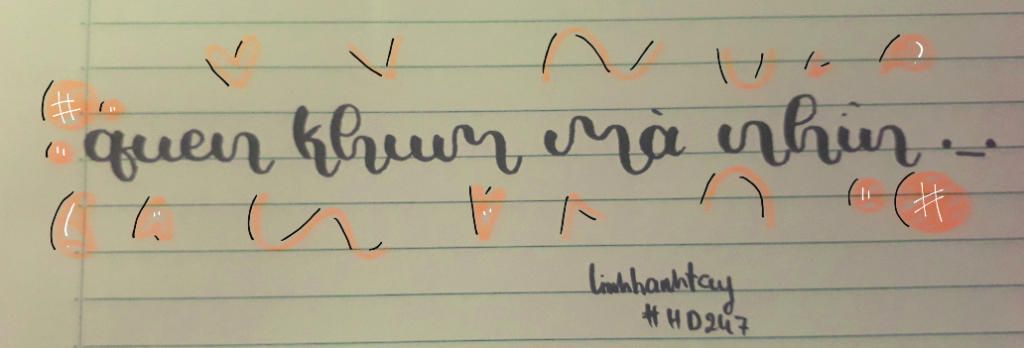 quen khum mà nhìn ._.
linhhanhtay
#HD247